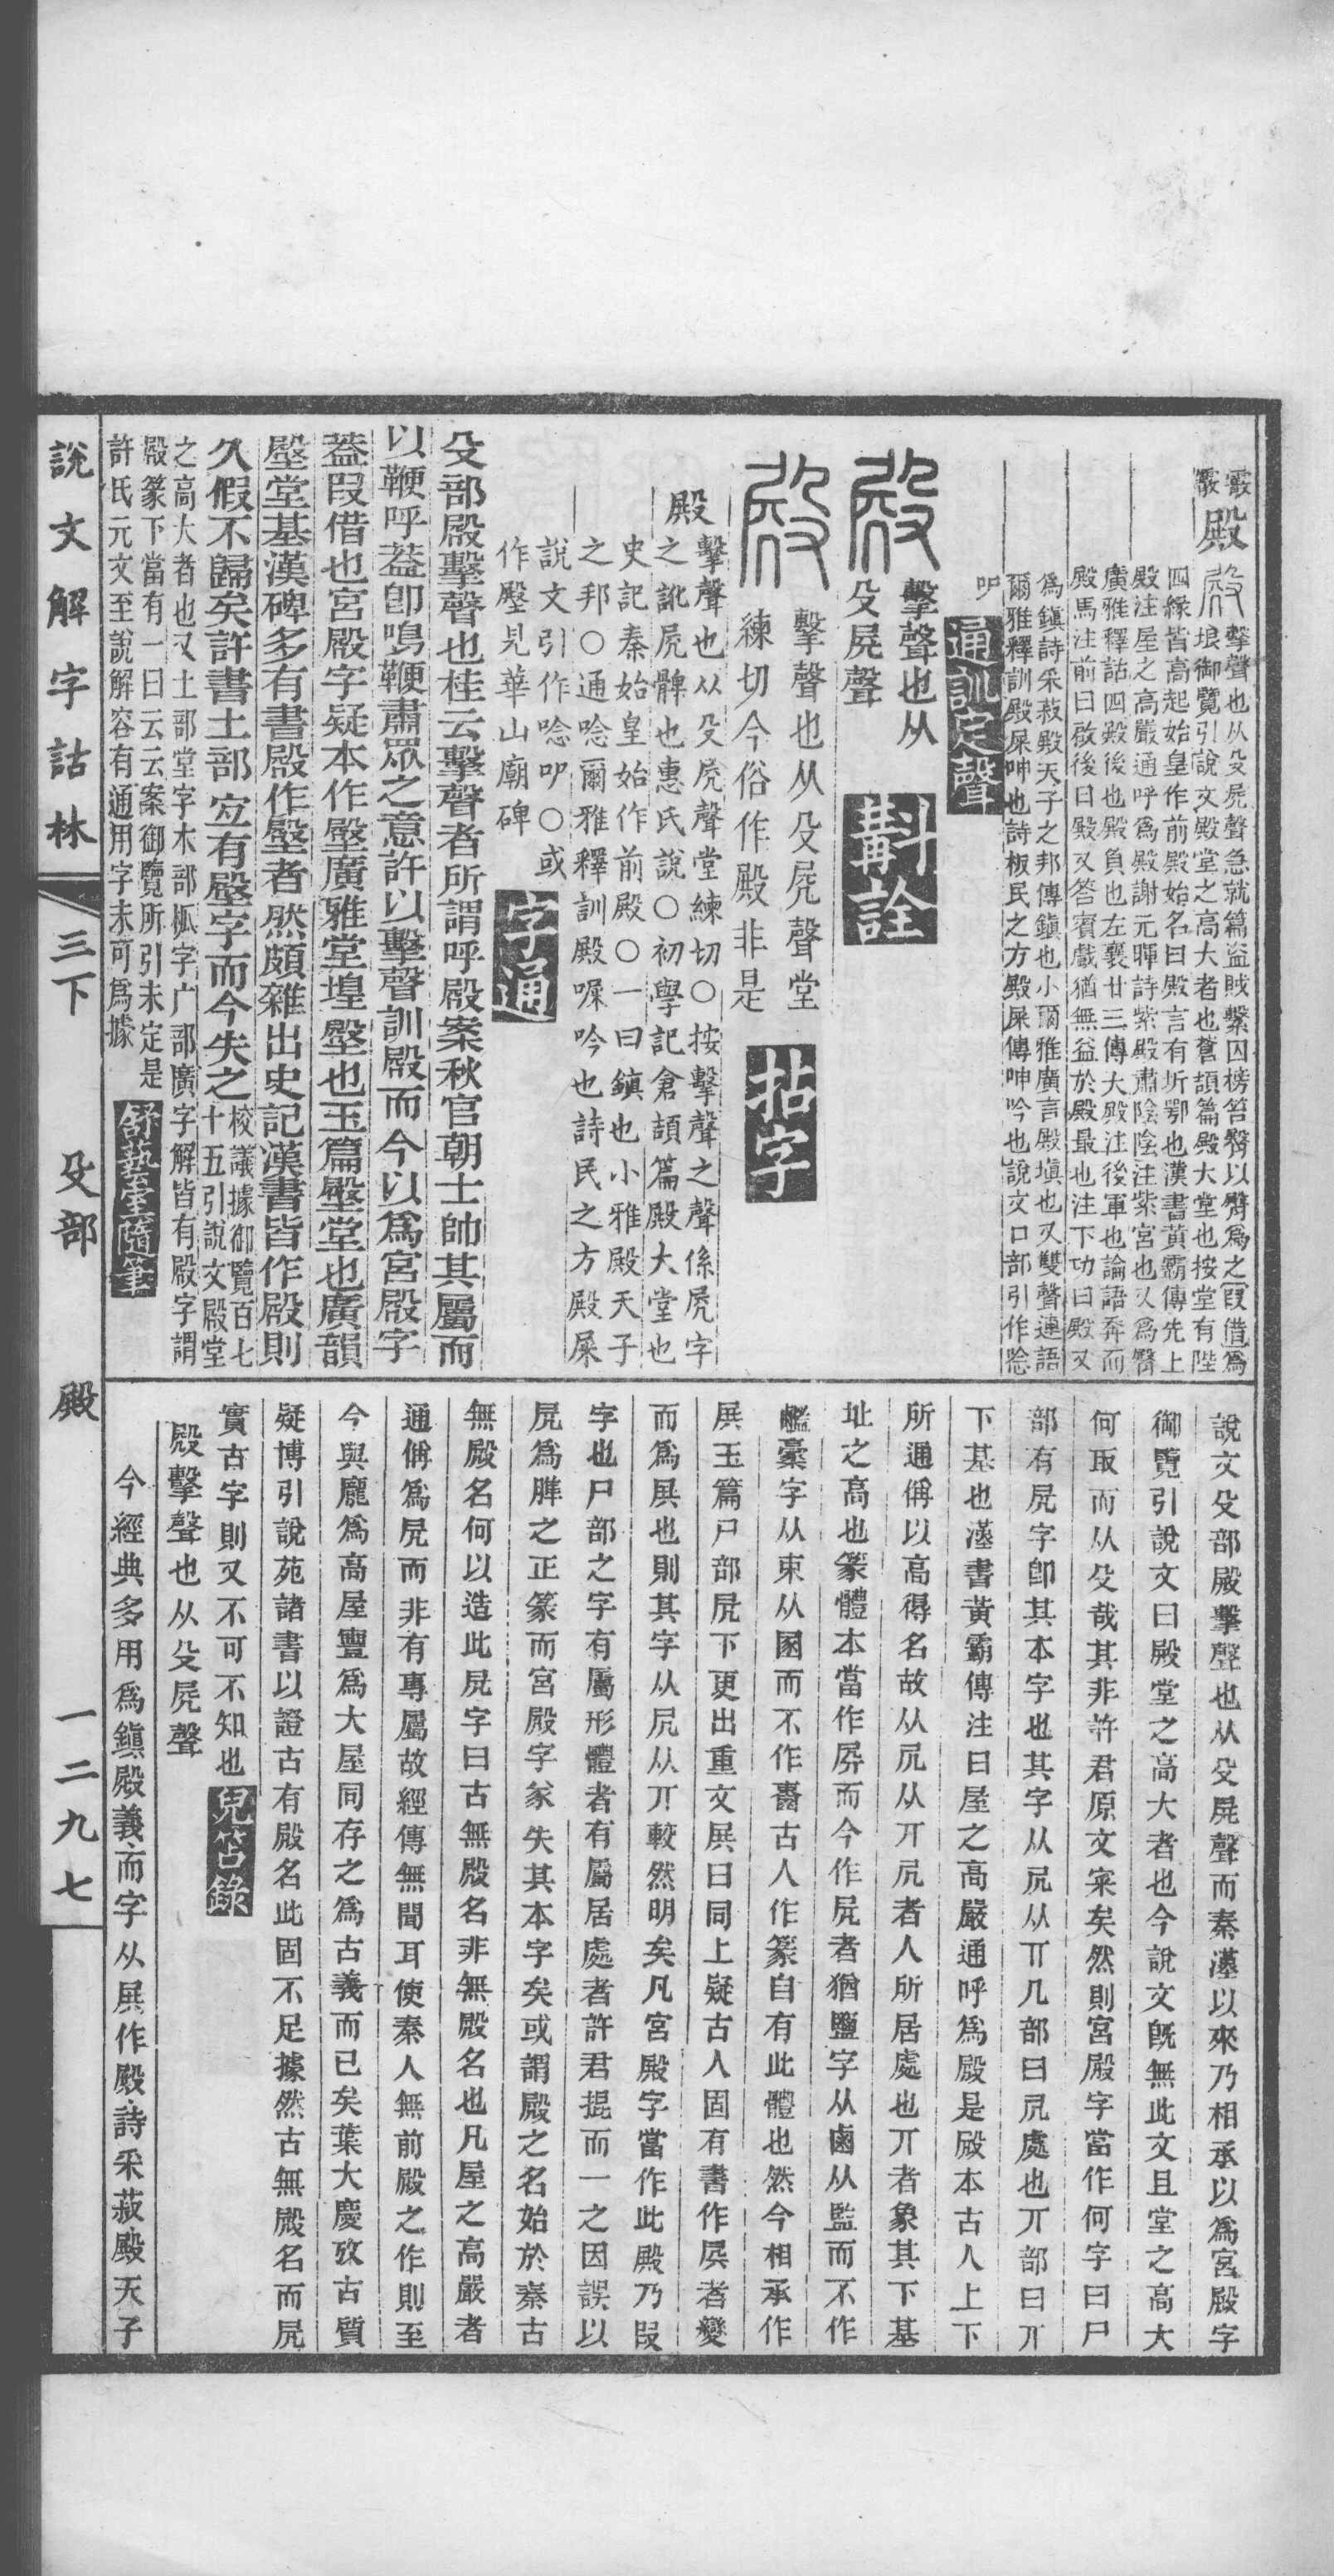 殿
擊聲也从殳𡱂聲急就篇盜賊繫囚榜笞臋以臋爲之叚借爲
垠御覽引說文殿堂之高大者也蒼頡篇殿大堂也按堂有陛
四緣皆高起始皇作前殿始名曰殿言有圻鄂也漢書黃霸傳先上
殿注屋之高嚴通呼爲殿謝元暉詩紫殿肅陰陰注紫宮也又爲臋
廣雅釋詁四殿後也殿負也左襄廿三傳大殿注後軍也論語奔而
殿馬注前曰啟後曰殿又答賓戲猶無益於殿最也注下功曰殿又
爲鎭詩采菽殿天子之邦傳鎭也小爾雅廣言殿塡也又雙聲連語
爾雅釋訓殿屎呻也詩板民之方殿屎傳呻吟也說文口部引作唸
吚
通訓定聲
擊聲也从
殳𡱂聲
斠詮
擊聲也从殳𡱂聲堂
練切今俗作殿非是
拈字
殿擊聲也从殳𡱂聲堂練切○按擊聲之聲係𡱂字
之訛𡱂髀也惠氏說○初學記倉頡篇殿大堂也
史記秦始皇始作前殿○一曰鎭也小雅殿天子
之邦○通唸爾雅釋訓殿屎吟也詩民之方殿屎
說文引作唸吚○或
作壂見華山廟碑
字通
殳部殿擊聲也桂云擊聲者所謂呼殿案秋官朝士帥其屬而
以鞭呼葢卽鳴鞭肅眾之意許以擊聲訓殿而今以爲宮殿字
葢叚借也宮殿字疑本作壂廣雅堂堭壂也玉篇壂堂也廣韻
壂堂基漢碑多有書殿作壂者然頗雜出史記漢書皆作殿則
久假不歸矣許書土部宐有壂字而今失之校議據御覽百七
十五引說文殿堂
之高大者也又土部堂字木部柧字广部廣字解皆有殿字謂
殿篆下當有一曰云云案御覽所引未定是
許氏元文至說解容有通用字未可爲據
舒藝室隨筆
說文殳部殿擊聲也从殳𡱂聲而秦漢以來乃相承以爲宮殿字
御覽引說文曰殿堂之高大者也今說文旣無此文且堂之高大
何取而从殳哉其非許君原文宷矣然則宮殿字當作何字曰尸
部有𡱂字卽其本字也其字从凥从丌几部曰凥處也丌部曰丌
下基也漢書黃霸傳注曰屋之高嚴通呼爲殿是殿本古人上下
所通偁以高得名故从凥从丌凥者人所居處也丌者象其下基
址之高也篆體本當作𡱂而今作𡱂者猶鹽字从鹵从監而不作
而爲𡱂也則其字从凥从丌較然明矣凡宮殿字當作此殿乃叚
字也尸部之字有屬形體者有屬居處者許君掍而一之因誤以
𡱂爲脽之正篆而宮殿字遂失其本字矣或謂殿之名始於秦古
無殿名何以造此𡱂字曰古無殿名非無殿名也凡屋之高嚴者
通偁爲𡱂而非有專屬故經傳無聞耳使秦人無前殿之作則至
今與龐爲高屋寷爲大屋同存之爲古義而已矣葉大慶攷古質
疑博引說苑諸書以證古有殿名此固不足據然古無殿名而𡱂
實古字則又不可不知也
兒笘錄
殿擊聲也从殳𡱂聲
今經典多用爲鎭殿義而字从𡱂作殿詩采菽殿天子
說文解字詁林
三下
殳部
殿
一二九七